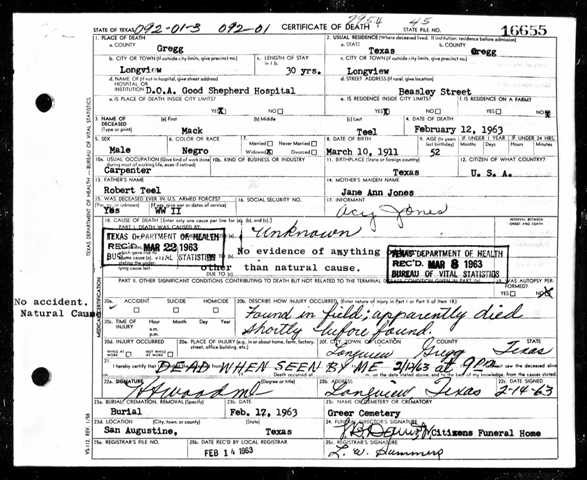 092-01-3 092-01 7954 45
STATE OF TEXAS CERTIFICATE OF DEATH STATE FILE NO. 16655
1. PLACE OF DEATH 2. USUAL RESIDENCE (Where deceased lived. If institution: residence before admission)
a. COUNTY Gregg a. STATE Texas b. COUNTY Gregg
b. CITY OR TOWN (If outside city limits, give precinct no.) Longview c. LENGTH OF STAY in 1 b. 30 yrs. c. CITY OR TOWN (If outside city limits, give precinct no.) Longview
d. NAME OF (If not in hospital, give street address) HOSPITAL OR INSTITUTION D.O.A. Good Shepherd Hospital d. STREET ADDRESS (If rural, give location) Beasley Street
e. IS PLACE OF DEATH INSIDE CITY LIMITS? YES NO e. IS RESIDENCE INSIDE CITY LIMITS? YES NO f. IS RESIDENCE ON A FARM? YES NO
3. NAME OF DECEASED (Type or print) (a) First Mack (b) Middle (c) Last Teel 4. DATE OF DEATH February 12, 1963
5. SEX Male 6. COLOR OR RACE Negro 7. Married Never Married Widowed Divorced 8. DATE OF BIRTH March 10, 1911 9. AGE (In years last birthday) 52 IF UNDER 1 YEAR Months Days IF UNDER 24 HRS. Hours Min.
10a. USUAL OCCUPATION (Give kind of work done during most of working life, even if retired) Carpenter 10b. KIND OF BUSINESS OR INDUSTRY 11. BIRTHPLACE (State or foreign country) Texas 12. CITIZEN OF WHAT COUNTRY? U. S. A.
13. FATHER'S NAME Robert Teel 14. MOTHER'S MAIDEN NAME Jane Ann Jones
15. WAS DECEASED EVER IN U.S. ARMED FORCES? (Yes, no, or unknown) Yes (If yes, give war or dates of service) WW II 16. SOCIAL SECURITY NO. 17. INFORMANT Acy Jones
18. CAUSE OF DEATH [Enter only one cause per line for (a), (b), and (c).] INTERVAL BETWEEN ONSET AND DEATH
PART I. DEATH WAS CAUSED BY: Unknown
TEXAS DEPARTMENT OF HEALTH
REC'D MAR 22 1963
BUREAU OF VITAL STATISTICS
No evidence of anything
other than natural cause.
TEXAS DEPARTMENT OF HEALTH
REC'D. MAR 8 1963
BUREAU OF VITAL STATISTICS
lying cause last. DUE TO (c)
PART II. OTHER SIGNIFICANT CONDITIONS CONTRIBUTING TO DEATH BUT NOT RELATED TO THE TERMINAL 19. WAS AUTOPSY PERFORMED? YES NO
No accident.
Natural Cause
20a. ACCIDENT SUICIDE HOMICIDE 20b. DESCRIBE HOW INJURY OCCURRED. (Enter nature of injury in Part I or Part II of item 18.)
Found in field; apparently died
shortly before found.
20c. TIME OF INJURY Hour a.m. p.m. Month Day Year
20d. INJURY OCCURRED WHILE AT WORK NOT WHILE AT WORK 20e. PLACE OF INJURY (e.g., in or about home, farm, factory, street, office building, etc.) 20f. CITY, TOWN, OR LOCATION Longview COUNTY Gregg STATE Texas
21. I hereby certify that DEAD WHEN SEEN BY ME at 9 P.M.
Death occurred at m. on the date stated above, and to the best of my knowledge, from the causes stated
22a. SIGNATURE (Degree or title) 22b. ADDRESS Longview Texas 22c. DATE SIGNED 2-14-63
23a. BURIAL, CREMATION, REMOVAL (Specify) Burial 23b. DATE Feb. 17, 1963 23c. NAME OF CEMETERY OR CREMATORY Greer Cemetery
23d. LOCATION (City, town, or county) San Augustine, (State) Texas 24. FUNERAL DIRECTOR'S SIGNATURE Citizens Funeral Home
25a. REGISTRAR'S FILE NO. 25b. DATE REC'D BY LOCAL REGISTRAR FEB 14 1963 25c. REGISTRAR'S SIGNATURE L. W. Summers
TEXAS DEPARTMENT OF HEALTH — BUREAU OF VITAL STATISTICS
MEDICAL CERTIFICATION
VS-112 REV. 1/58